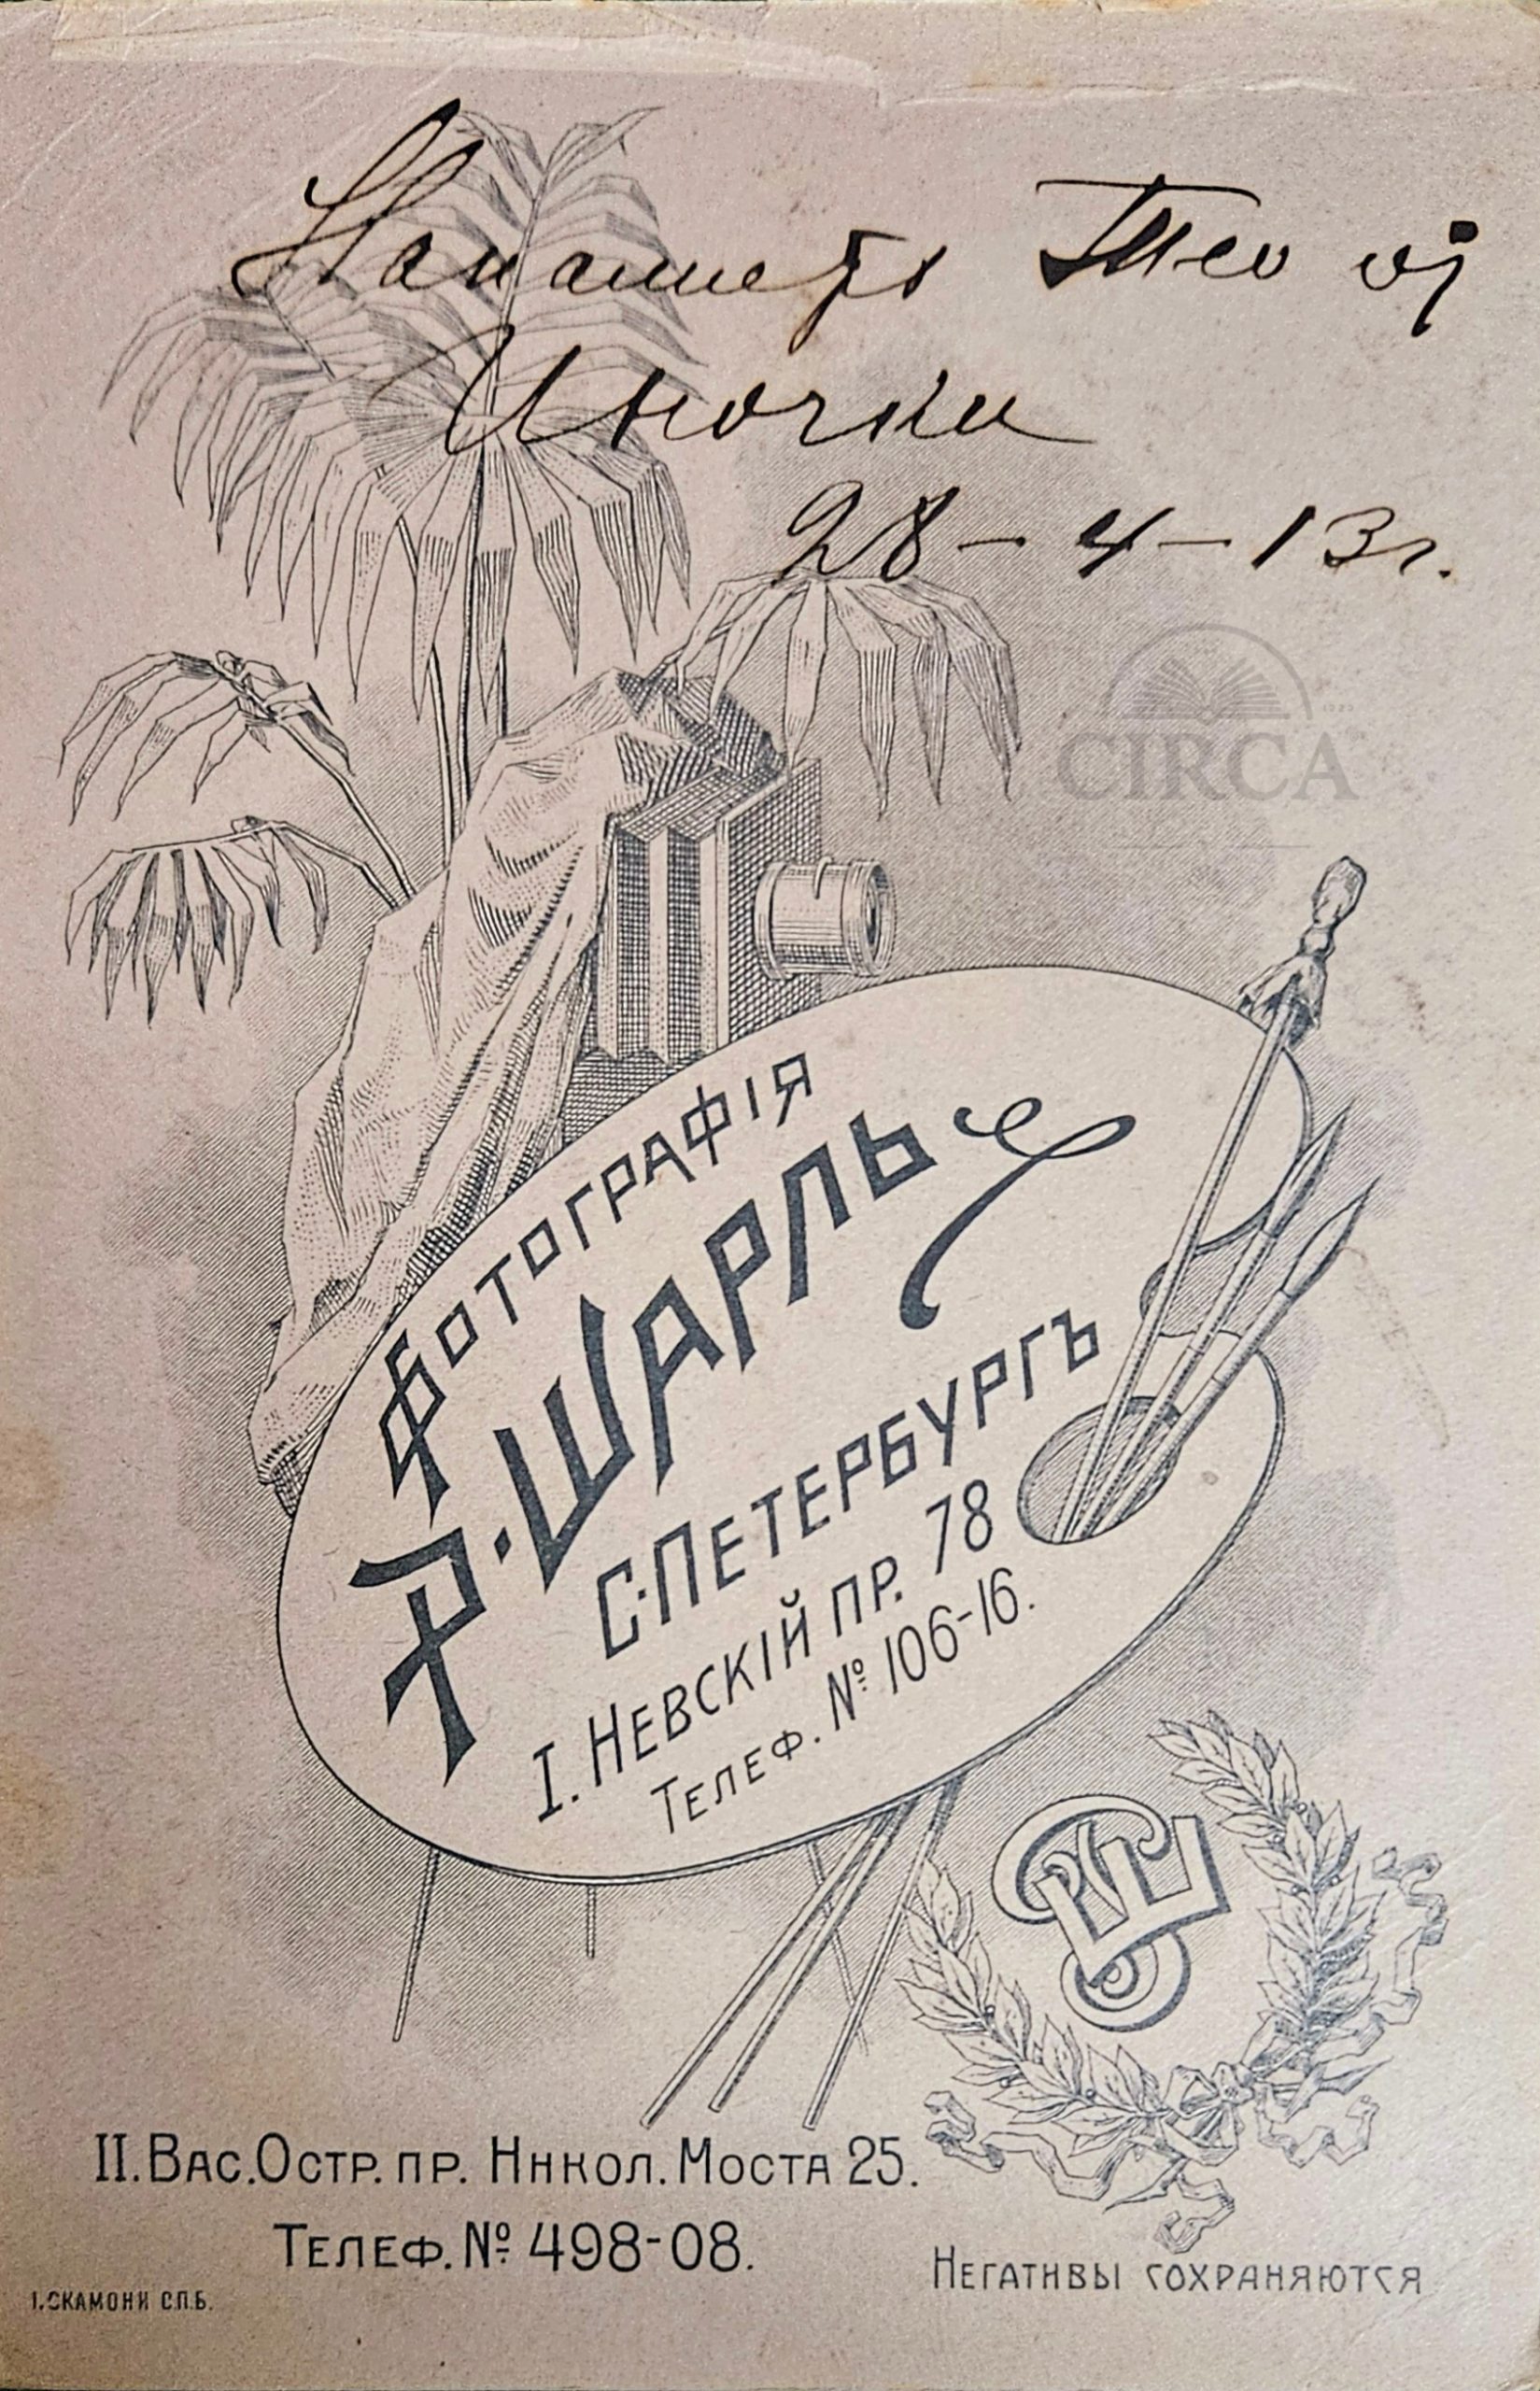 На память Тео от
Иночки
28-4-13г.
CIRCA
ФОТОГРАФІЯ
Р. ШАРЛЬ
С-ПЕТЕРБУРГЪ
I. НЕВСКІЙ ПР. 78
ТЕЛЕФ. № 106-16.
II. ВАС. ОСТР. ПР. НИКОЛ. МОСТА 25.
ТЕЛЕФ. № 498-08.
НЕГАТИВЫ СОХРАНЯЮТСЯ
І. СКАМОНИ С.П.Б.